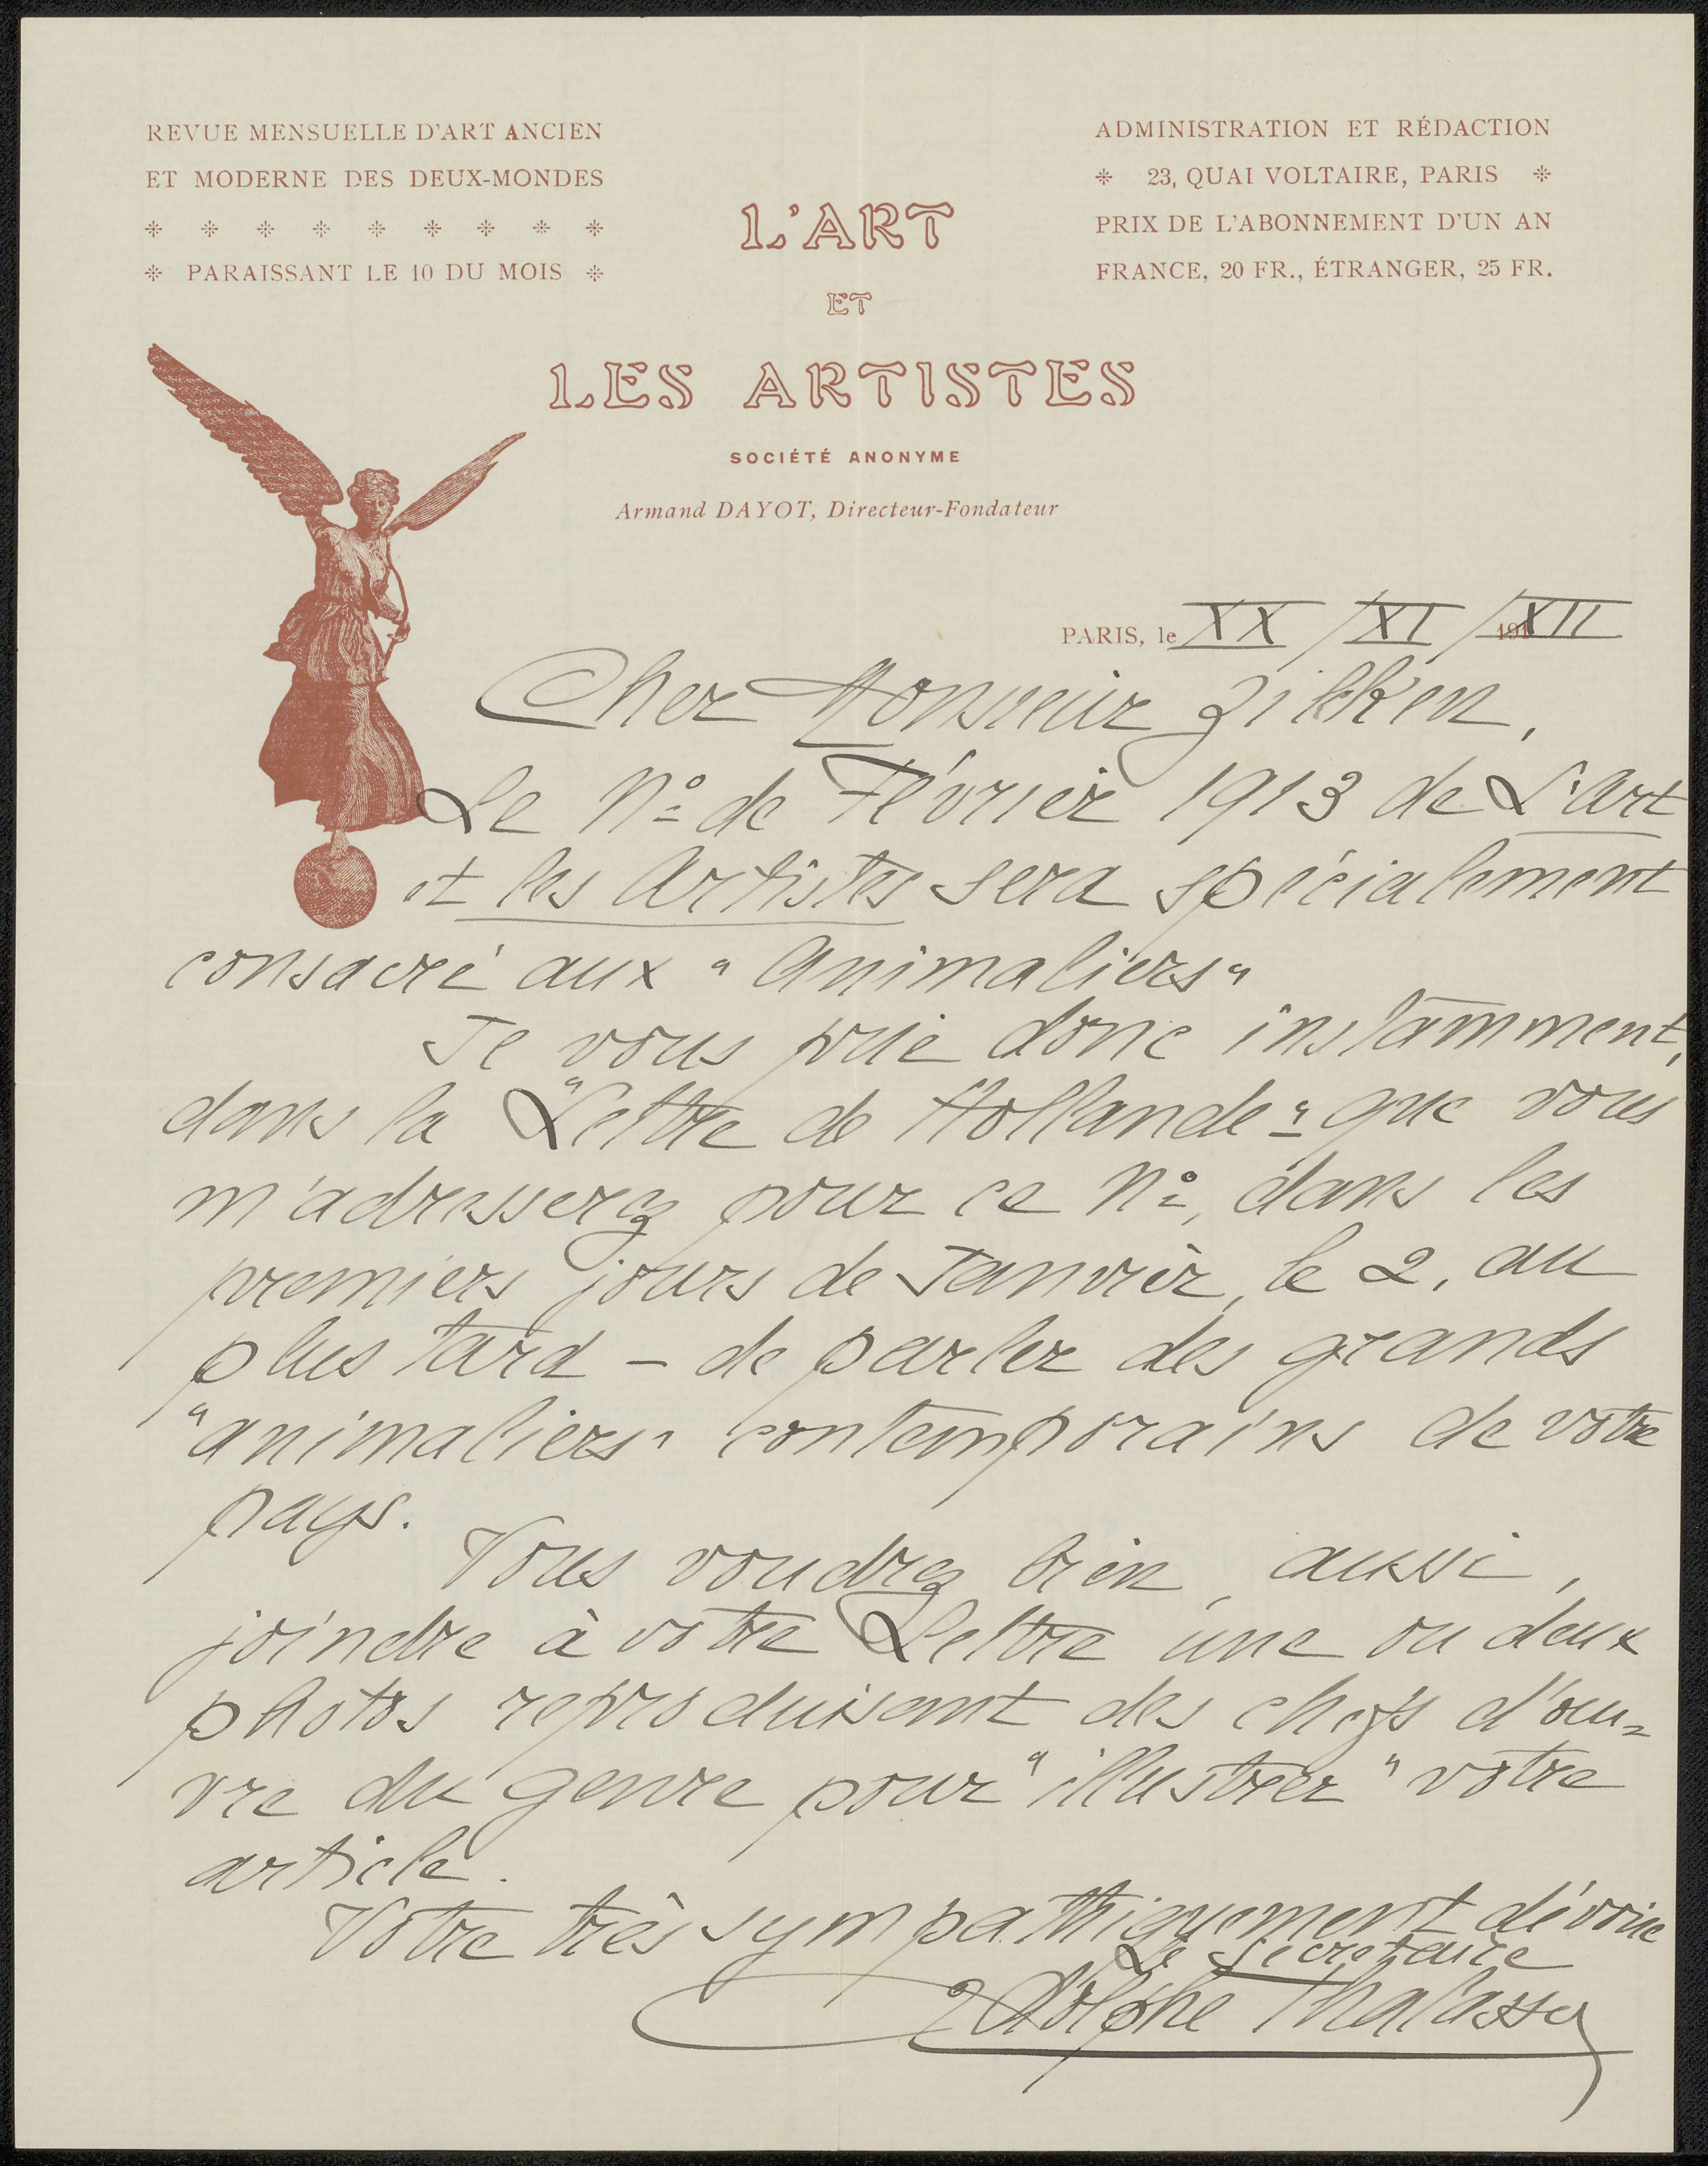 REVUE MENSUELLE D'ART ANCIEN
ET MODERNE DES DEUX-MONDES
PARAISSANT LE 10 DU MOIS
ADMINISTRATION ET RÉDACTION
23, QUAI VOLTAIRE, PARIS
PRIX DE L'ABONNEMENT D'UN AN
FRANCE, 20 FR., ÉTRANGER, 25 FR.
L'ART
ET
LES ARTISTES
SOCIÉTÉ ANONYME
Armand DAYOT, Directeur-Fondateur
PARIS, le XX / XI / XII
Cher Monsieur Zilkken,
Le No de Février 1913 de L'Art
et les Artistes sera spécialement
consacré aux "Animaliers"
Je vous prie donc instamment,
dans la "Lettre de Hollande" que vous
m'adresserez pour ce No, dans les
premiers jours de Janvier, le 2, au
plus tard – de parler des grands
"animaliers" contemporains de votre
pays.
Vous voudrez bien, aussi,
joindre à votre Lettre une ou deux
photos reproduisant des chefs d'œu=
vre du genre pour "illustrer" votre
article.
Votre très sympathiquement dévoué
Le Secrétaire
Adolphe Thalasso